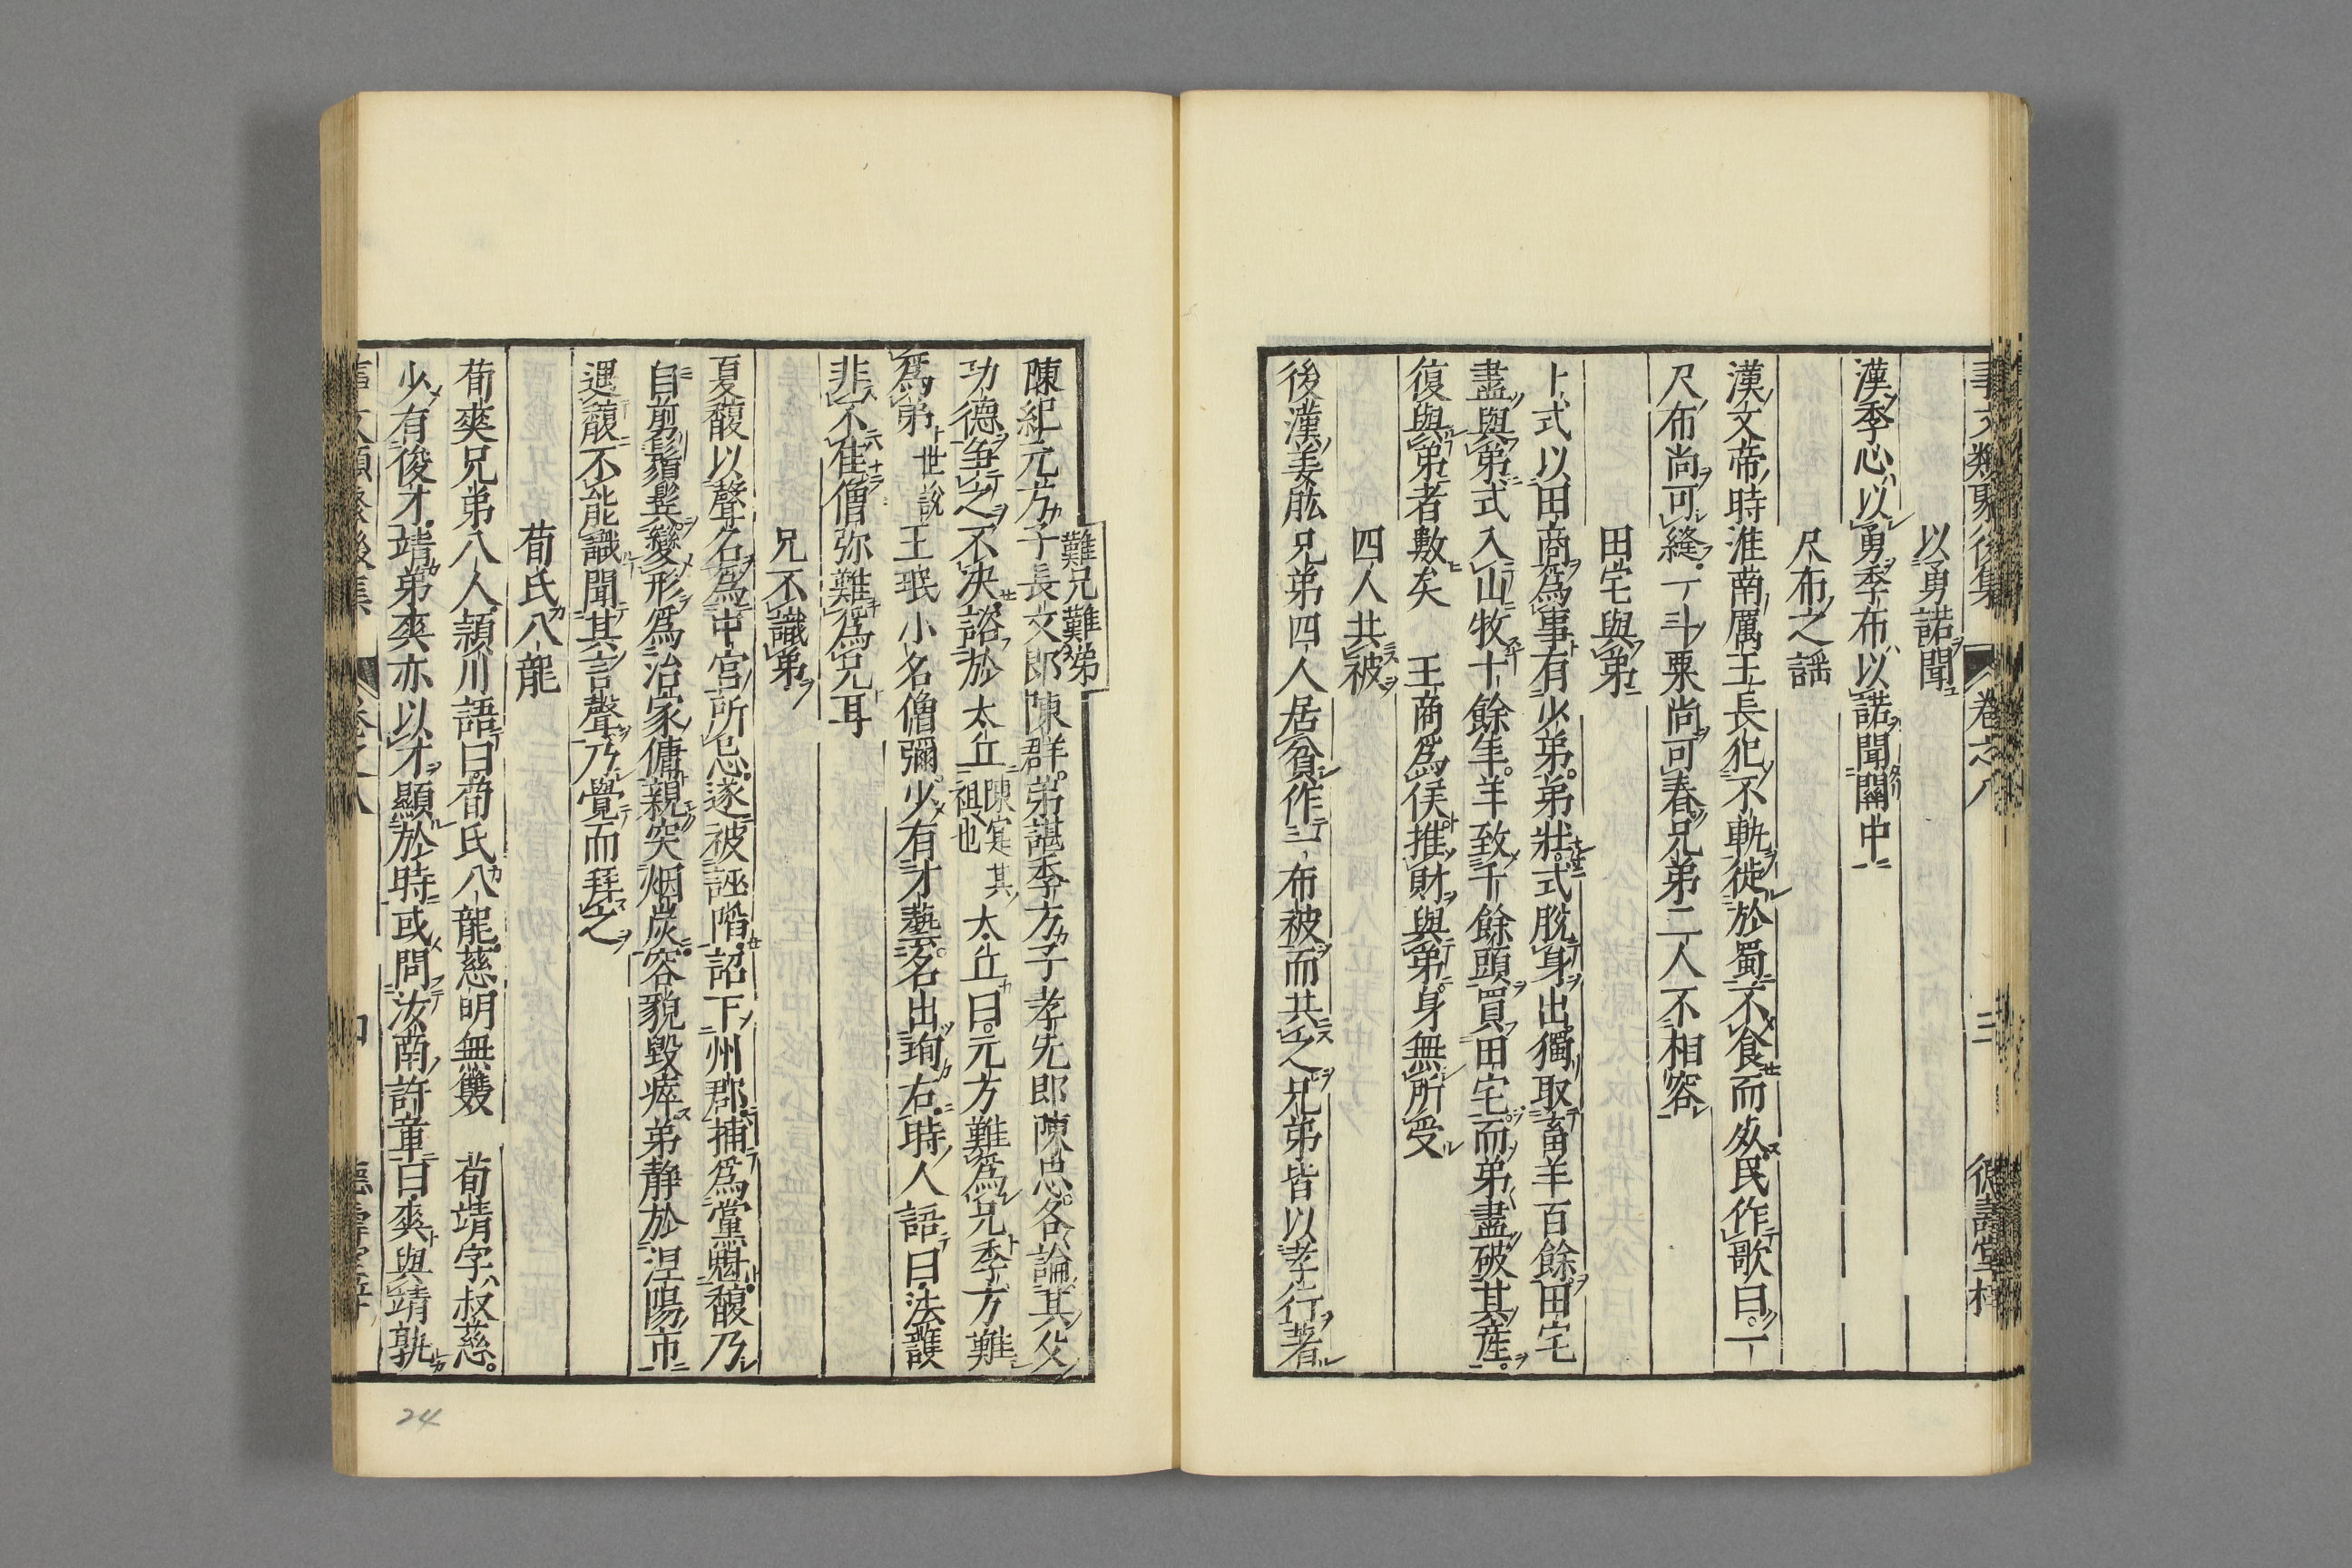 事文類聚後集 卷之八 三
以勇諾聞
漢季心以勇季布以諾聞關中
尺布之謡
漢文帝時淮南厲王長犯不軌徙於蜀不食而死民作歌曰一
尺布尚可縫一斗粟尚可舂兄弟二人不相容
田宅與弟
卜式以田商為事有少弟弟壯式脱身出獨取畜羊百餘田宅
盡與弟式入山牧十餘年羊致千餘頭買田宅而弟盡破其産
復與弟者數矣 王商爲侯推財與弟身無所受
四人共被
後漢姜肱兄弟四人居貧作一布被而共之兄弟皆以孝行著
難兄難弟
陳紀元方子長文郎陳群弟諶季方子孝先郎陳忠各論其父
功德爭之不决諮於太丘陳寔其祖也太丘曰元方難爲兄季方難
爲弟世説 王珉小名僧彌少有才藝名出珣右時人語曰法護
非不佳僧弥難爲兄耳
兄不識弟
夏馥以聲名爲中宮所忌遂被誣陷詔下州郡捕爲黨魁馥乃
自剪鬚髮變形爲冶家傭親突烟炭容貌毀瘁弟静於涅陽市
遇馥不能識聞其言聲乃覺而拜之
荀氏八龍
荀爽兄弟八人頴川語曰荀氏八龍慈明無雙 荀靖字叔慈
少有俊才靖弟爽亦以才顯於時或問汝南許章曰爽與靖孰